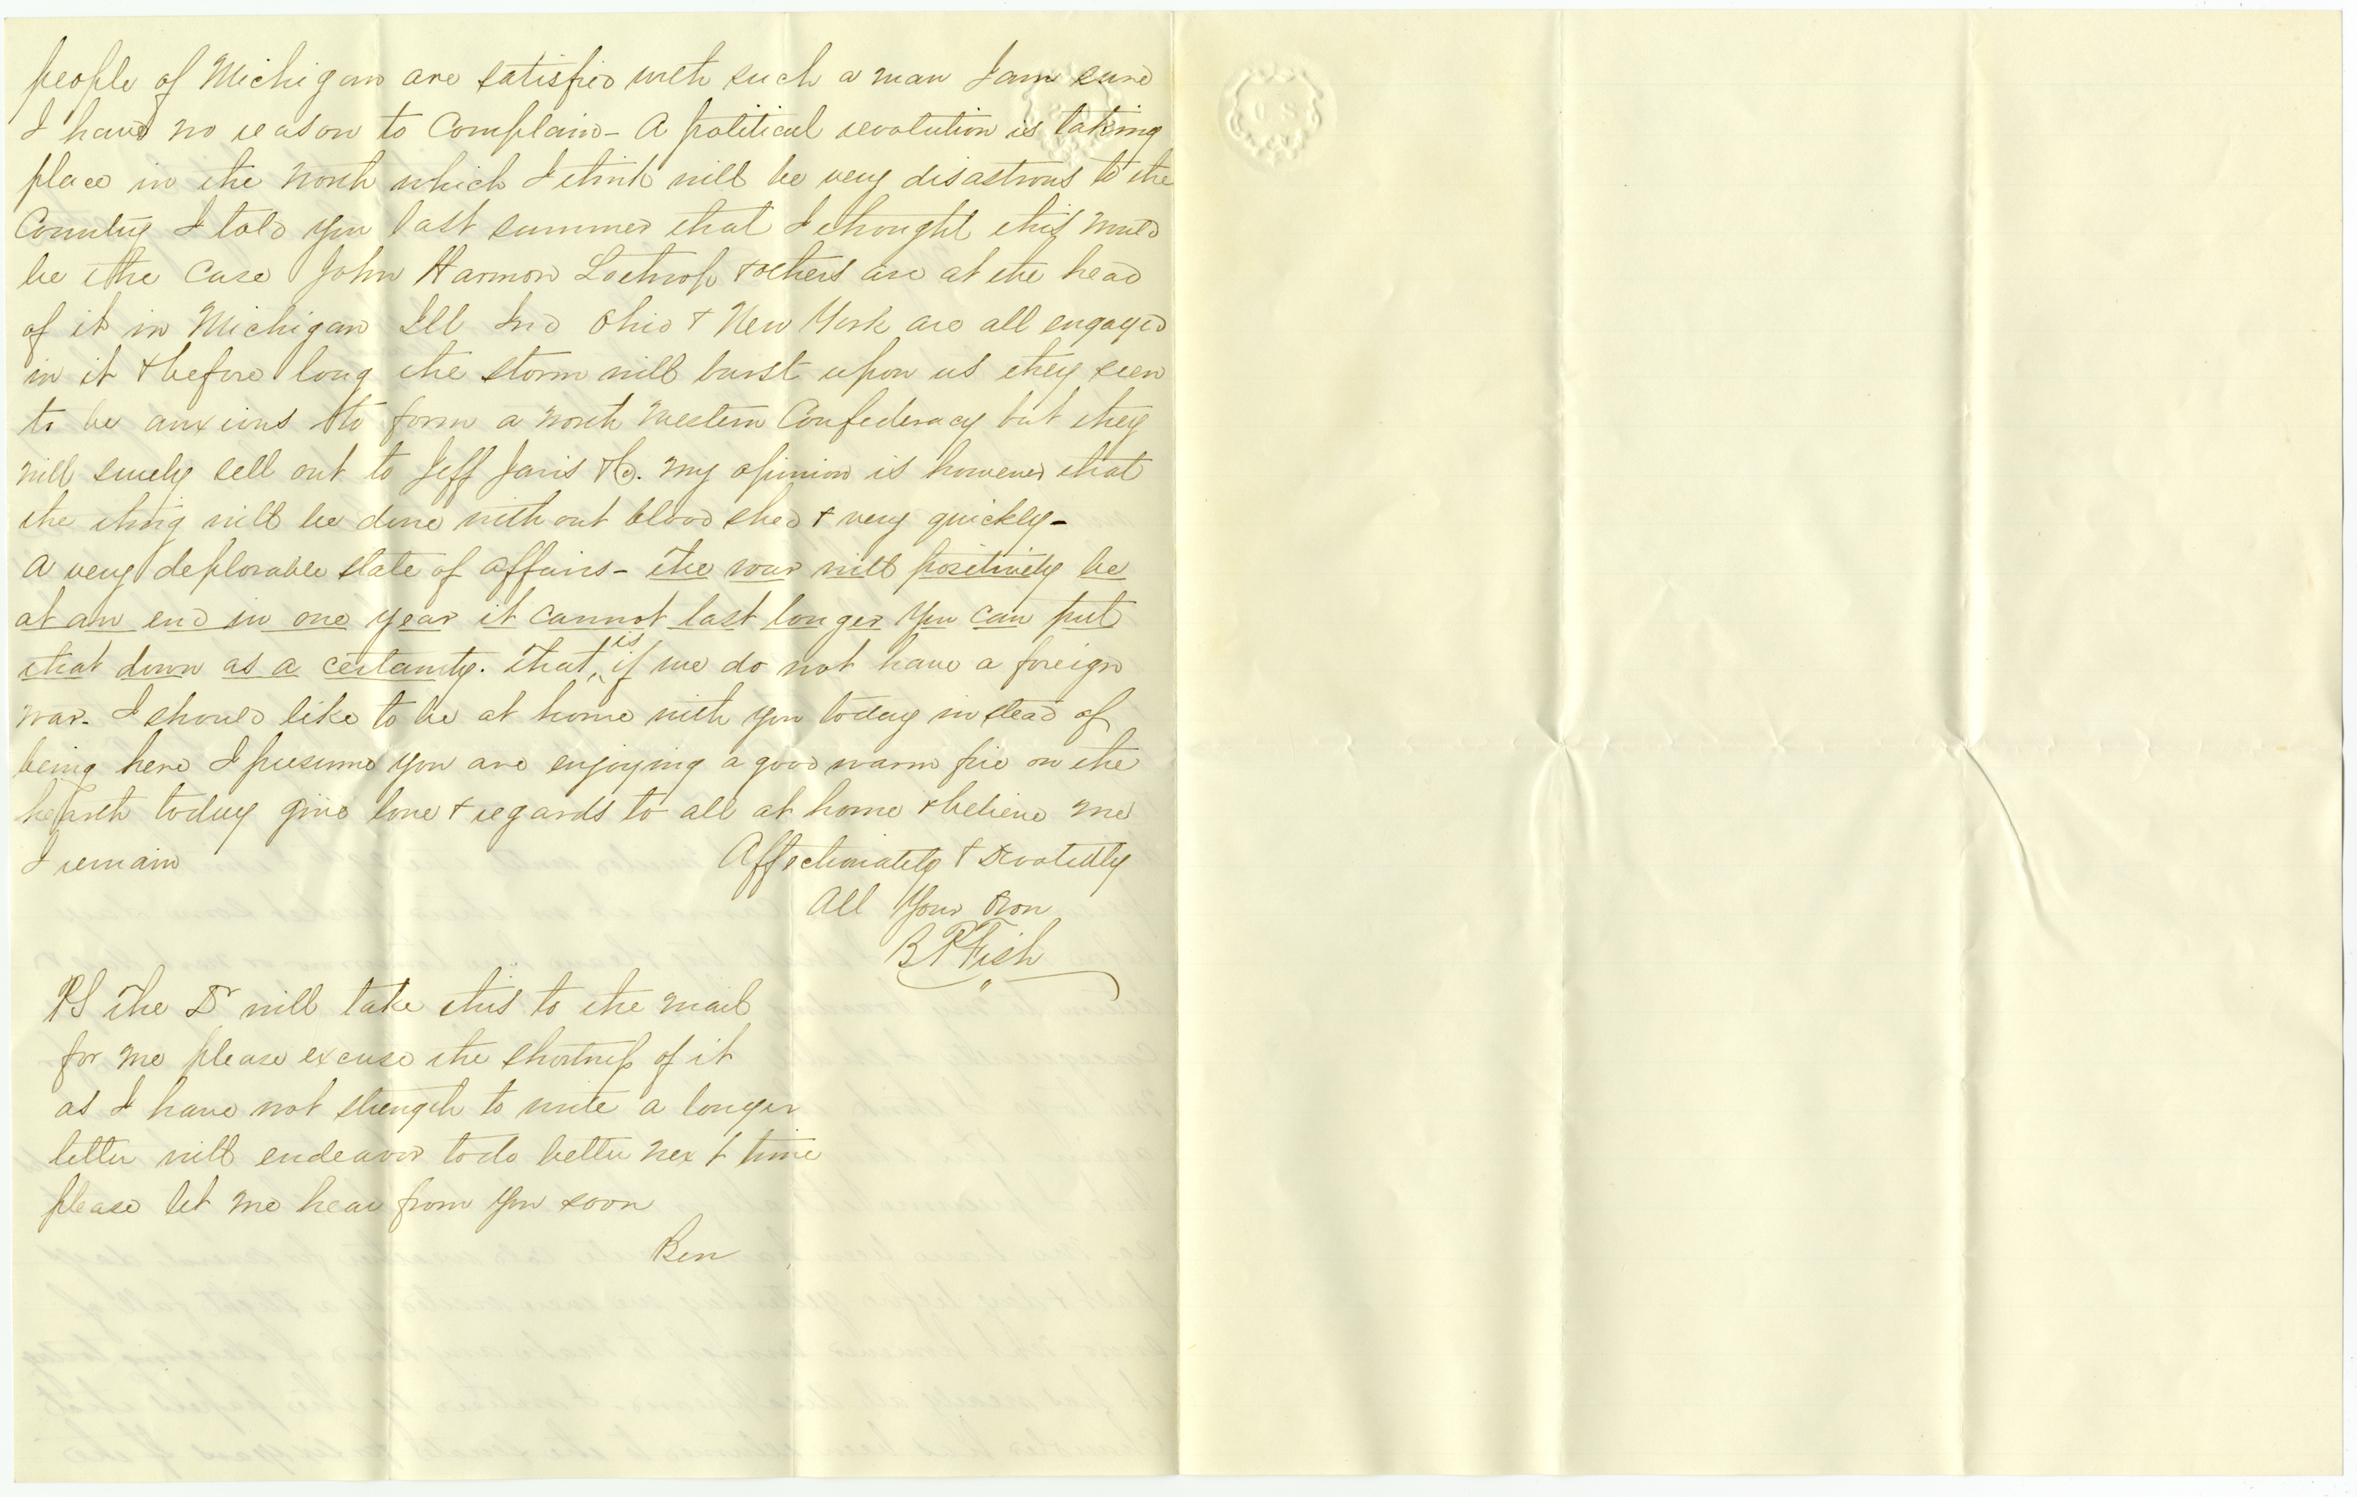 people of Michigan are satisfied with such a man I am sure
I have no reason to Complain - A political revolution is taking
place in the North which I think will be very disastrous to the
Country I told you last summer that I thought this would
be the Case John Harmon Lothrop & others are at the head
of it in Michigan Ill Ind Ohio & New York are all engaged
in it & before long the storm will burst upon us they seem
to be anxious to form a North Western Confederacy but they
will surely sell out to Jeff Davis & Co. my opinion is however that
the thing will be done without bloodshed & very quickly -
A very deplorable state of affairs - the war will positively be
at an end in one year it cannot last longer you can put
that down as a certainty. That, is if we do not have a foreign
war - I should like to be at home with you today instead of
being here I presume you are enjoying a good warm fire on the
hearth today give love & regards to all at home & believe me
I remain Affectionately & Devotedly
All Your Son
B F Fish
PS The Dr will take this to the mail
for me please excuse the shortness of it
as I have not strength to write a longer
letter will endeavor to do better next time
please let me hear from you soon
Ben